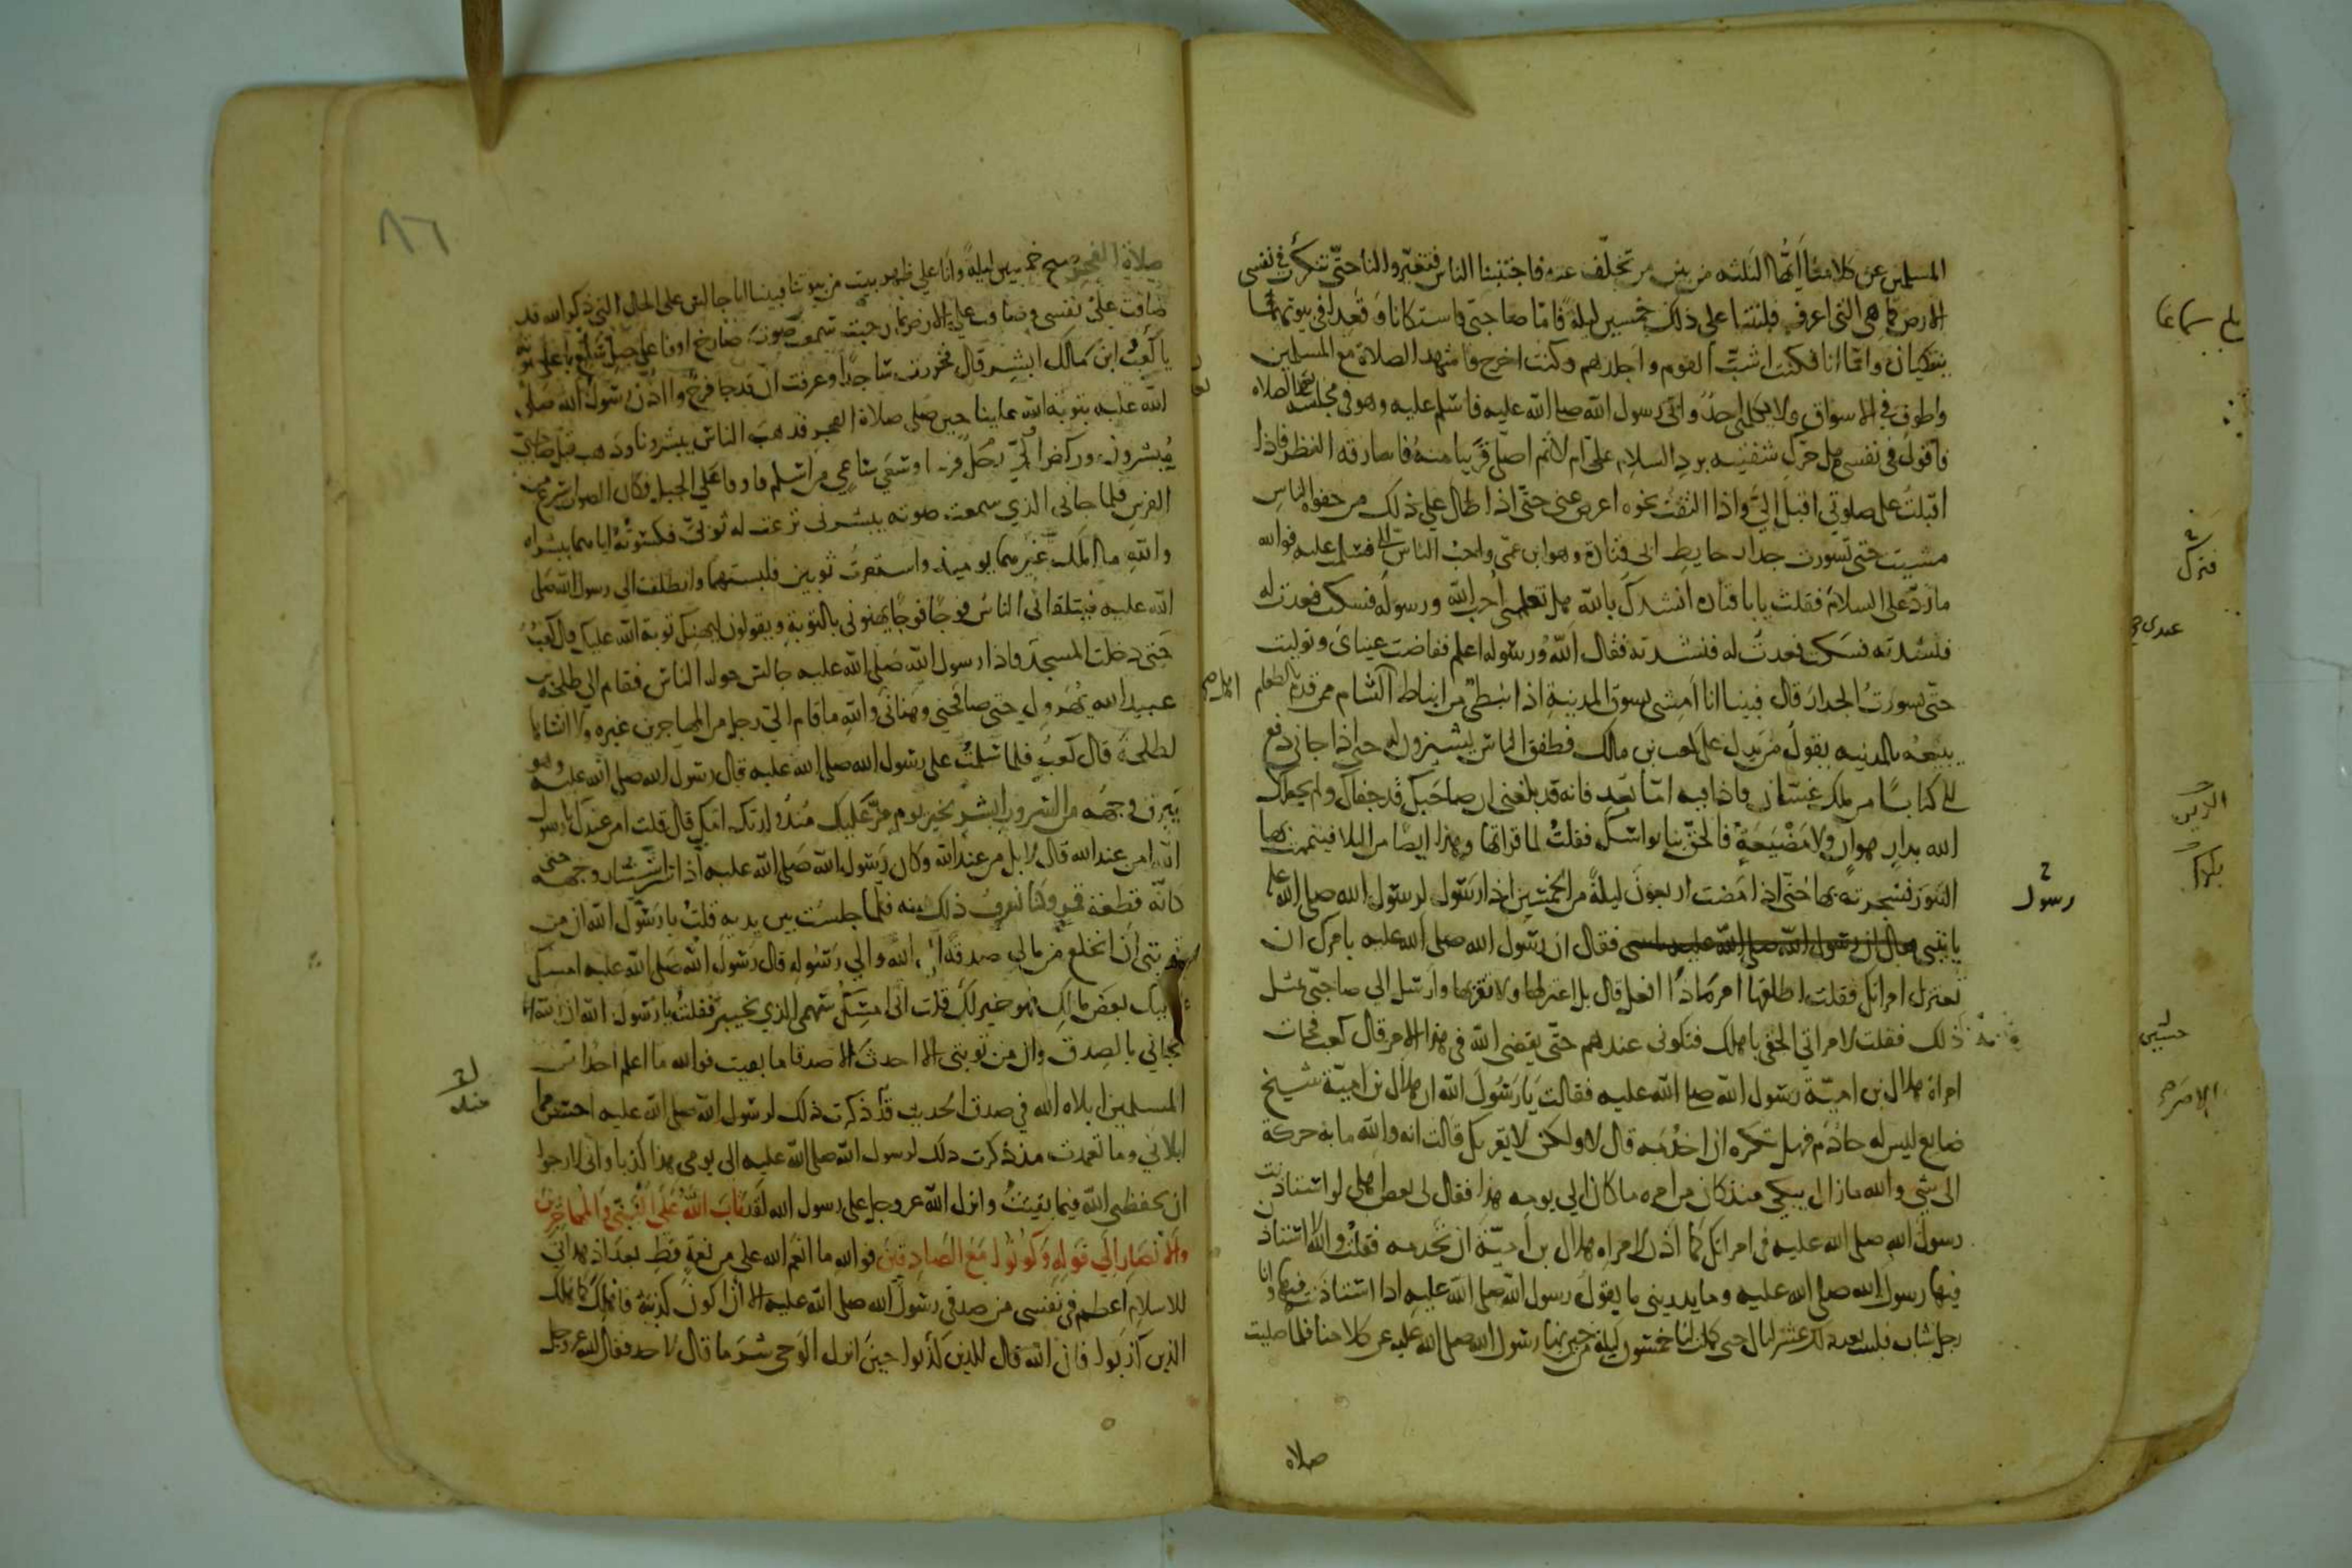 المسلمين عن كلامنا أيّها الثلثه من بين من تخلّف عنه فاجتنبنا الناس فتغيّروا لنا حتّى تنكرت في نفسي
الارض فما هي التي اعرف فلبثنا على ذلك خمسين ليلة فامّا صاحبيّ فاستكانا وقعدا في بيوتهما
يبكيان وامّا انا فكنت اشبّ القوم واجلدهم وكنت اخرج فاشهد الصلاة مع المسلمين
واطوف في الاسواق ولا يكلمني احدٌ واتى رسول الله صلى الله عليه فاسلم عليه وهو في مجلسه بعد الصلاه
فاقول في نفسي هل حرّك شفتيه برد السلام علىّ ام لا ثم اصلّى قريبا منه فاسارقه النظر فاذا
اقبلتُ على صلوتي اقبل إليّ واذا التفتّ نحوه اعرض عني حتّى اذا طال علي ذلك من جفوة الناس
مشيت حتى تسورت جدار حايط ابى قتادة وهو ابن عمّي واحبّ الناس إليّ فسلمت عليه فوالله
ما ردّ عليّ السلام فقلت يابا قتاده انشدك بالله هل تعلمني أحب الله ورسوله فسكت فعدت له
فنشدته فسكت فعدت له فنشدته فقال اللهُ ورسوله اعلم ففاضت عيناى وتوليت
حتّى تسورتُ الجدار قال فبينا انا أمشي بسوق المدينة اذا نبطى من انباط الشام ممن قدم بالطعام
يبيعه بالمدينه يقول من يدل على كعب بن مالك فطفق الناس يشيرون له حتى اذا جاني دفع
الي كتابا من ملك غسّان فاذا فيه امّا بعد فانه قد بلغني ان صاحبك قد جفاك ولم يجعلك
الله بدار هوان ولا مضيعةٍ فالحق بنا نواسك فقلتُ لما قراتها وهذا ايضًا من البلا فتيممت بها
التنور فسجرته بها حتّى اذا مضت اربعون ليلةً من الخمسين اذا رسول لرسول الله صلى الله عليه
ياتيني فقال ان رسول الله صلى الله عليه يامرك ان
تعتزل امراتك فقلت اطلقها ام ماذا افعل قال بل اعتزلها ولا تقربها وارسل الى صاحبيّ بمثل
ذلك فقلت لامراتي الحقي باهلك فتكونى عندهم حتّى يقضى الله في هذا الامر قال كعب فجات
امراة هلال بن اميّة رسول الله صلى الله عليه فقالت يا رسُول الله ان هلال بن اميّة شيخ
ضايع ليس له خادم فهل تكره ان اخدمه قال لا ولكن لا يقربك قالت انه والله ما به حركة
الى شي والله ما زال يبكي منذ كان من امره ما كان الى يومه هذا فقال لى بعض اهلي لو استاذنت
رسول الله صلى الله عليه في امراتك كما اذن لامراه هلال بن أميّة ان تخدمه فقلتُ والله لا استاذن
فيها رسول الله صلى الله عليه وما يدرينى ما يقول رسول الله صلى الله عليه اذا استاذنته فيها وانا
رجل شاب فلبثت بعد ذلك عشر ليال حتى كملت لنا خمسون ليلة من حين نها رسول الله صلى الله عليه عن كلامنا فلما صليت
صلاه
رسول
٨٦
صلاة الفجر صبح خمسين ليلةً وأنا علي ظهر بيت من بيوتنا فبينا انا جالس على الحال التي ذكر الله قد
ضاقت عليّ نفسى وضاقت علي الارض بما رحبت سمعت صوت صارخ اوفا على جبل سلع باعلى صوته
يا كعبُ ابن مالك ابشِر قال فخررت ساجدًا وعرفت ان قد جا فرجٌ واذن رسول الله صلى
الله عليه بتوبة الله علينا حين صلى صلاة الفجر فذهب الناس يبشروننا وذهب قبل صاحبيّ
مُبشرون وركض إليّ رجل فرسا وسعى ساعي من اسلم فاوفا على الجبل فكان الصوت اسرع من
الفرس فلما جانى الذي سمعت صوته يبشرنى نزعت له ثوبيّ فكسوتُهُ اياهما ببشراه
والله ما املك غيرهما يوميذ واستعرت ثوبين فلبستهما وانطلقت الى رسول الله صلى
الله عليه فيتلقانى الناس فوجًا فوجًا يهنونى بالتوبة ويقولون ليهنك توبة الله عليك قال كعبُ
حتى دخلت المسجد فاذا رسول الله صلى الله عليه جالس حوله الناس فقام الي طلحة بن
عبيد الله يُهرول حتى صافحني وهنانى والله ما قام اليّ رجل من المهاجرين غيره ولا انساها
لطلحة قال كعبُ فلما سلمتُ على رسول الله صلى الله عليه قال رسول الله صلى الله عليه وهو
يبرق وجهه من السرور ابشر بخير يوم مرّ عليك مُنذُ ولدتك امك قال قلت امن عندك يا رسول
الله امن عند الله قال لا بل من عند الله وكان رسول الله صلى الله عليه اذا سُرّ استنار وجهه حتى
كانّه قطعة قمر وكنا نعرف ذلك منه فلمّا جلست بين يديه قلتُ يا رسول الله ان من
توبتى أن انخلع من مالي صدقة الى الله والي رسوله قال رسول الله صلى الله عليه امسك
عليك بعض مالك فهو خير لك قلت انى امسك سهمى الذي بخيبر فقلتُ يا رسول الله ان الله
نجاني بالصِدق وان من توبتى الا احدث الا صدقا ما بقيت فوالله ما اعلم احدا من
المسلمين ابلاه الله في صدق الحديث منذ ذكرت ذلك لرسول الله صلى الله عليه احسن مما
ابلاني وما تعمدت منذ ذكرت ذلك لرسول الله صلى الله عليه الى يومى هذا كذبا وانى لارجوا
ان يحفظنى الله فيما بقيتُ وانزل الله عز وجل على رسول الله لَقَد تَابَ اللَّهُ عَلَى النَّبِيّ وَالْمُهَاجِرِينَ
وَالْأنْصَارِ إلَي قوله وَكُونُوا مَعَ الصَادِقِينَ فوالله ما انعم الله علي من نعمةٍ قط بعد اذ هدانى
للاسلام أعظم في نفسى من صدقى رسول الله صلى الله عليه الا أن اكون كذبته فاهلك كما هلك
الذين كذبوا فان الله قال للذين كذبوا حين انزل الوحى شر ما قال لاحد فقال الله عز وجل